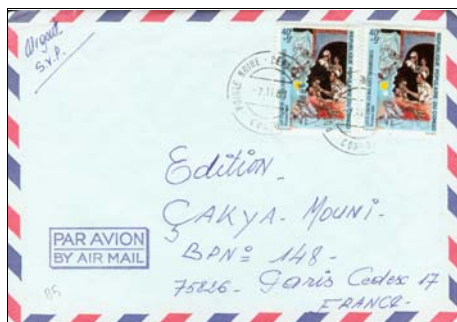 Urgent
S.V.P.
40F
40F
REPUBLIQUE POPULAIRE DU CONGO
REPUBLIQUE POPULAIRE DU CONGO
POINTE NOIRE
Edition_
ÇAKYA-MOUNI-
BPNº 148-
75826-Paris Cedex 17
FRANCE-
PAR AVION
BY AIR MAIL
85